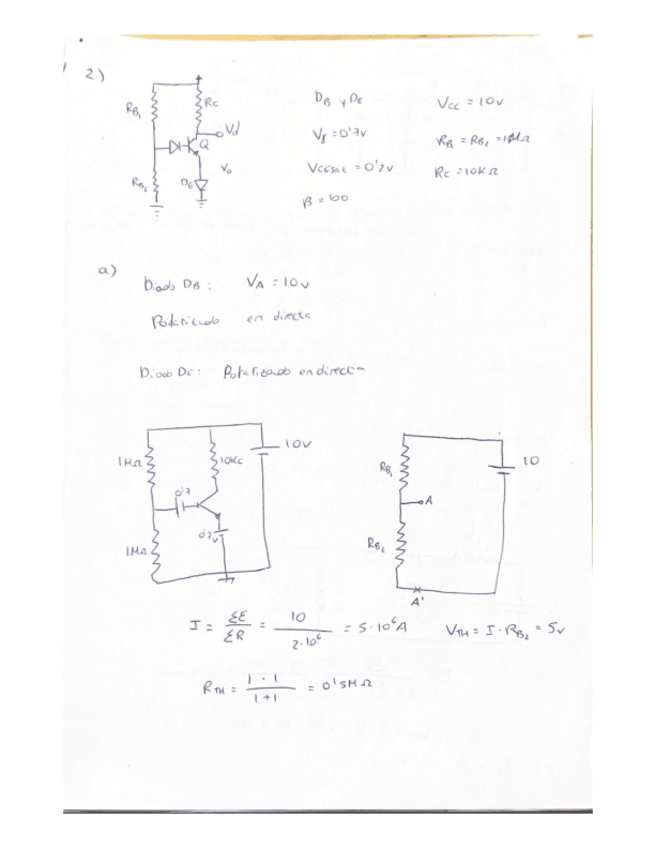 2)
RB1
RC
Vd
Q
Vo
RB2
DE
DB y DE
Vf = 0'7V
VCEsat = 0'2V
β = 100
Vcc = 10V
RB1 = RB2 = 1MΩ
RC = 10KΩ
a)
Diodo DB : VA = 10V
Polarizado en directa
Diodo DE : Polarizado en directa
1MΩ
10KΩ
10V
0'7
0'7V
1MΩ
RB1
10
A
RB2
A'
I = ΣE / ΣR = 10 / 2·10⁶ = 5·10⁶A
VTH = I·RB2 = 5V
RTH = 1·1 / 1+1 = 0'5MΩ